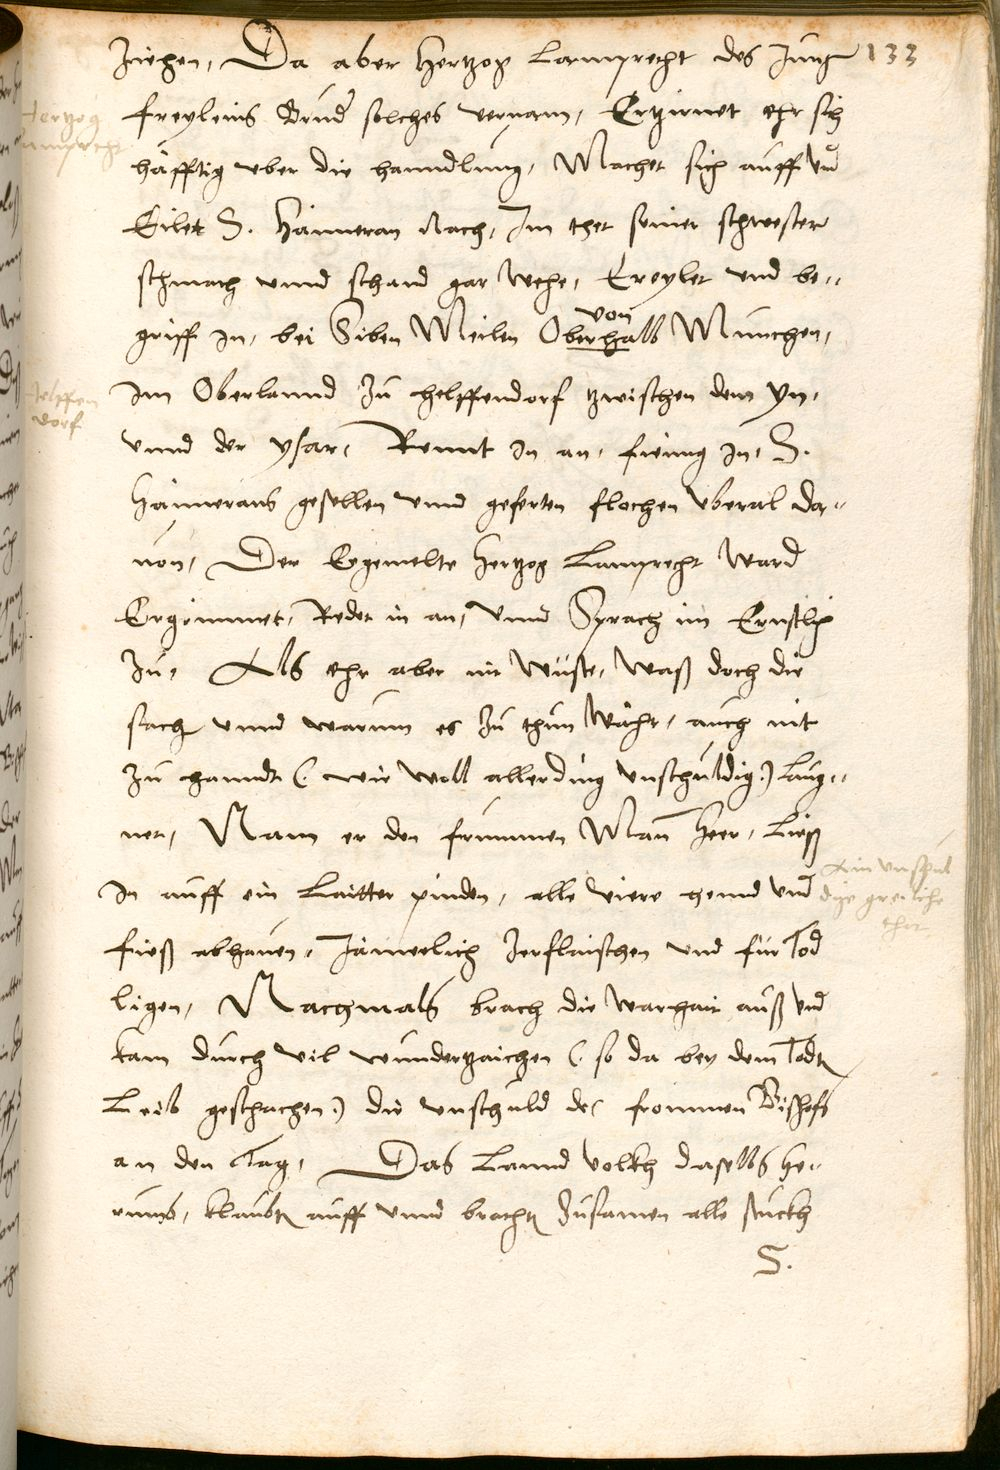 133
ziehen, Da aber Hertzog Lamprecht des Jung
freyleins Brud solches vernam, Ertzirnet ehr sich
häfftig vber die hanndlung, Machet sich auff vnd
Eilet S. Haimeran Nach, Im thet seiner schwester
schmach vnnd schand gar Wehe, Ereylet vnd be-
griff in, bei Siben Meilen Oberhalb von München,
im Oberlannd zu helffendorf tzwischen dem yn,
vnnd der ysar, Rennt in an, fieng in, S.
Haimerans gesellen vnnd geferten flochen vberal da-
uon, Der Egemelte Hertzog Lamprecht Ward
Ergrimmet, Redet in an, vnnd Sprach im Ernstlich
zu, Als ehr aber nit Wüste, Waß doch die
sach vnnd warum es zu thun Währ, auch nit
zu hanndt (wie woll allerding vnschuldig) Laug-
net, Nam er den frummen Man Heer, Ließ
in auff ein Laitter pinden, alle viere hennd vnd
fieß abhauen, Jämerlich zerflaischen vnd für Tod
ligen, Nachmals brach die warhait auß vnd
kam durch vil wundertzaichen (so da bey dem Todt
Leib geschachen) die vnschuld des frommen Bischofs
an den Tag, Das Lannd Volckh daselbs he-
rumb, klaubt auff vnnd bracht zusamen alle stuckh
S.
Hertzog
Lamprecht
helffen
dorf
Ain vnschul
dige greiliche
that